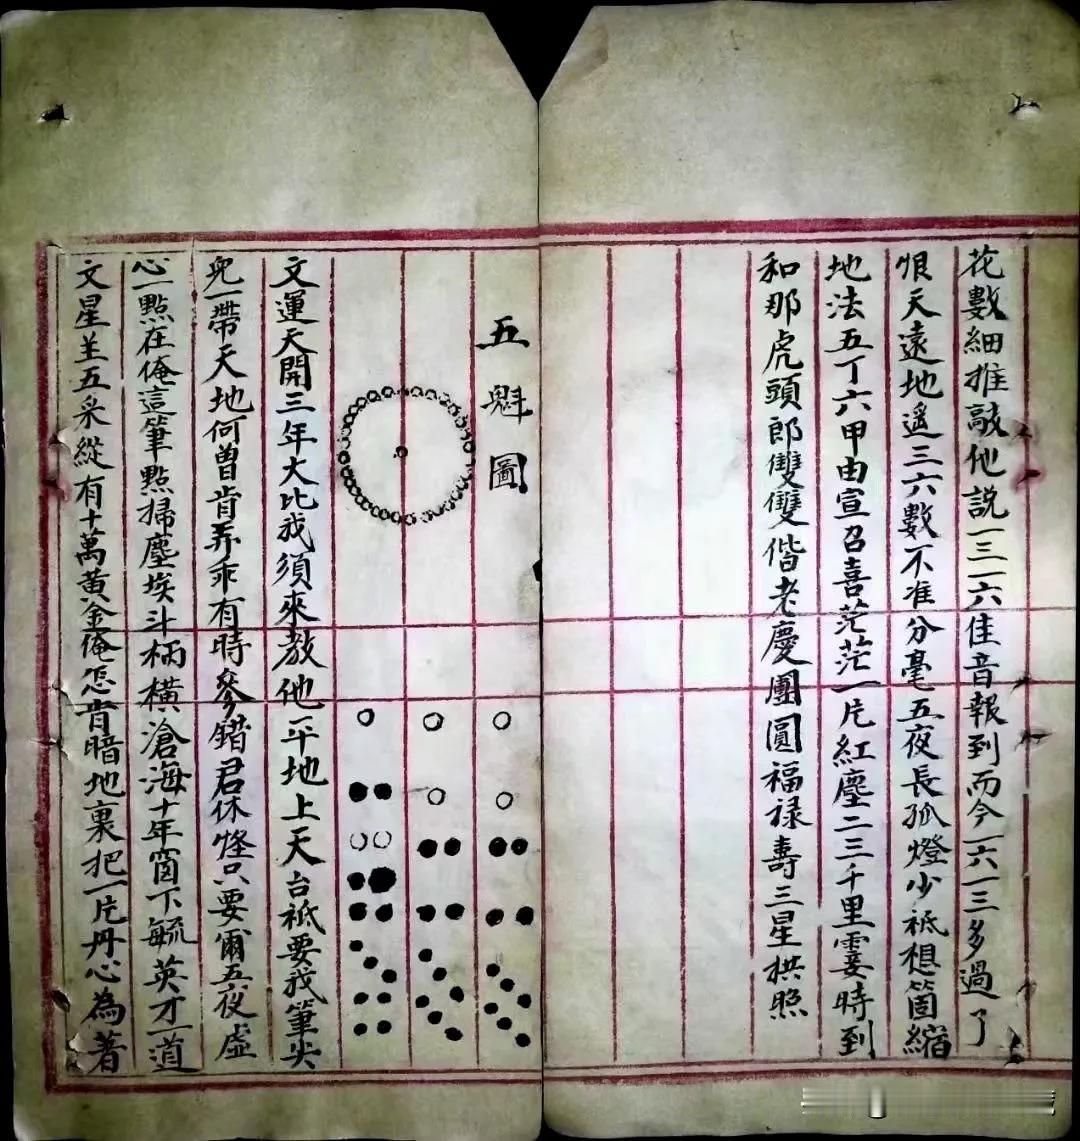 花數細推敲他説一三一六佳音報到而今一六一三多過了
恨天遠地遙三六數不准分毫五夜長孤燈少祗想箇縮
地法五丁六甲由宣召喜茫茫一片紅塵二三千里霎時到
和那虎頭郎雙雙偕老慶團圓福禄壽三星拱照
五魁圖
文運天開三年大比我須來教他平地上天台祗要我筆尖
兒一帶天地何曾肯弄乖有時參錯君休怪只要爾五夜虛
心一點在俺這筆點掃塵埃斗柄橫滄海十年窗下毓英才一道
文星主五采縱有十萬黃金俺怎肯暗地裏把一片丹心為著